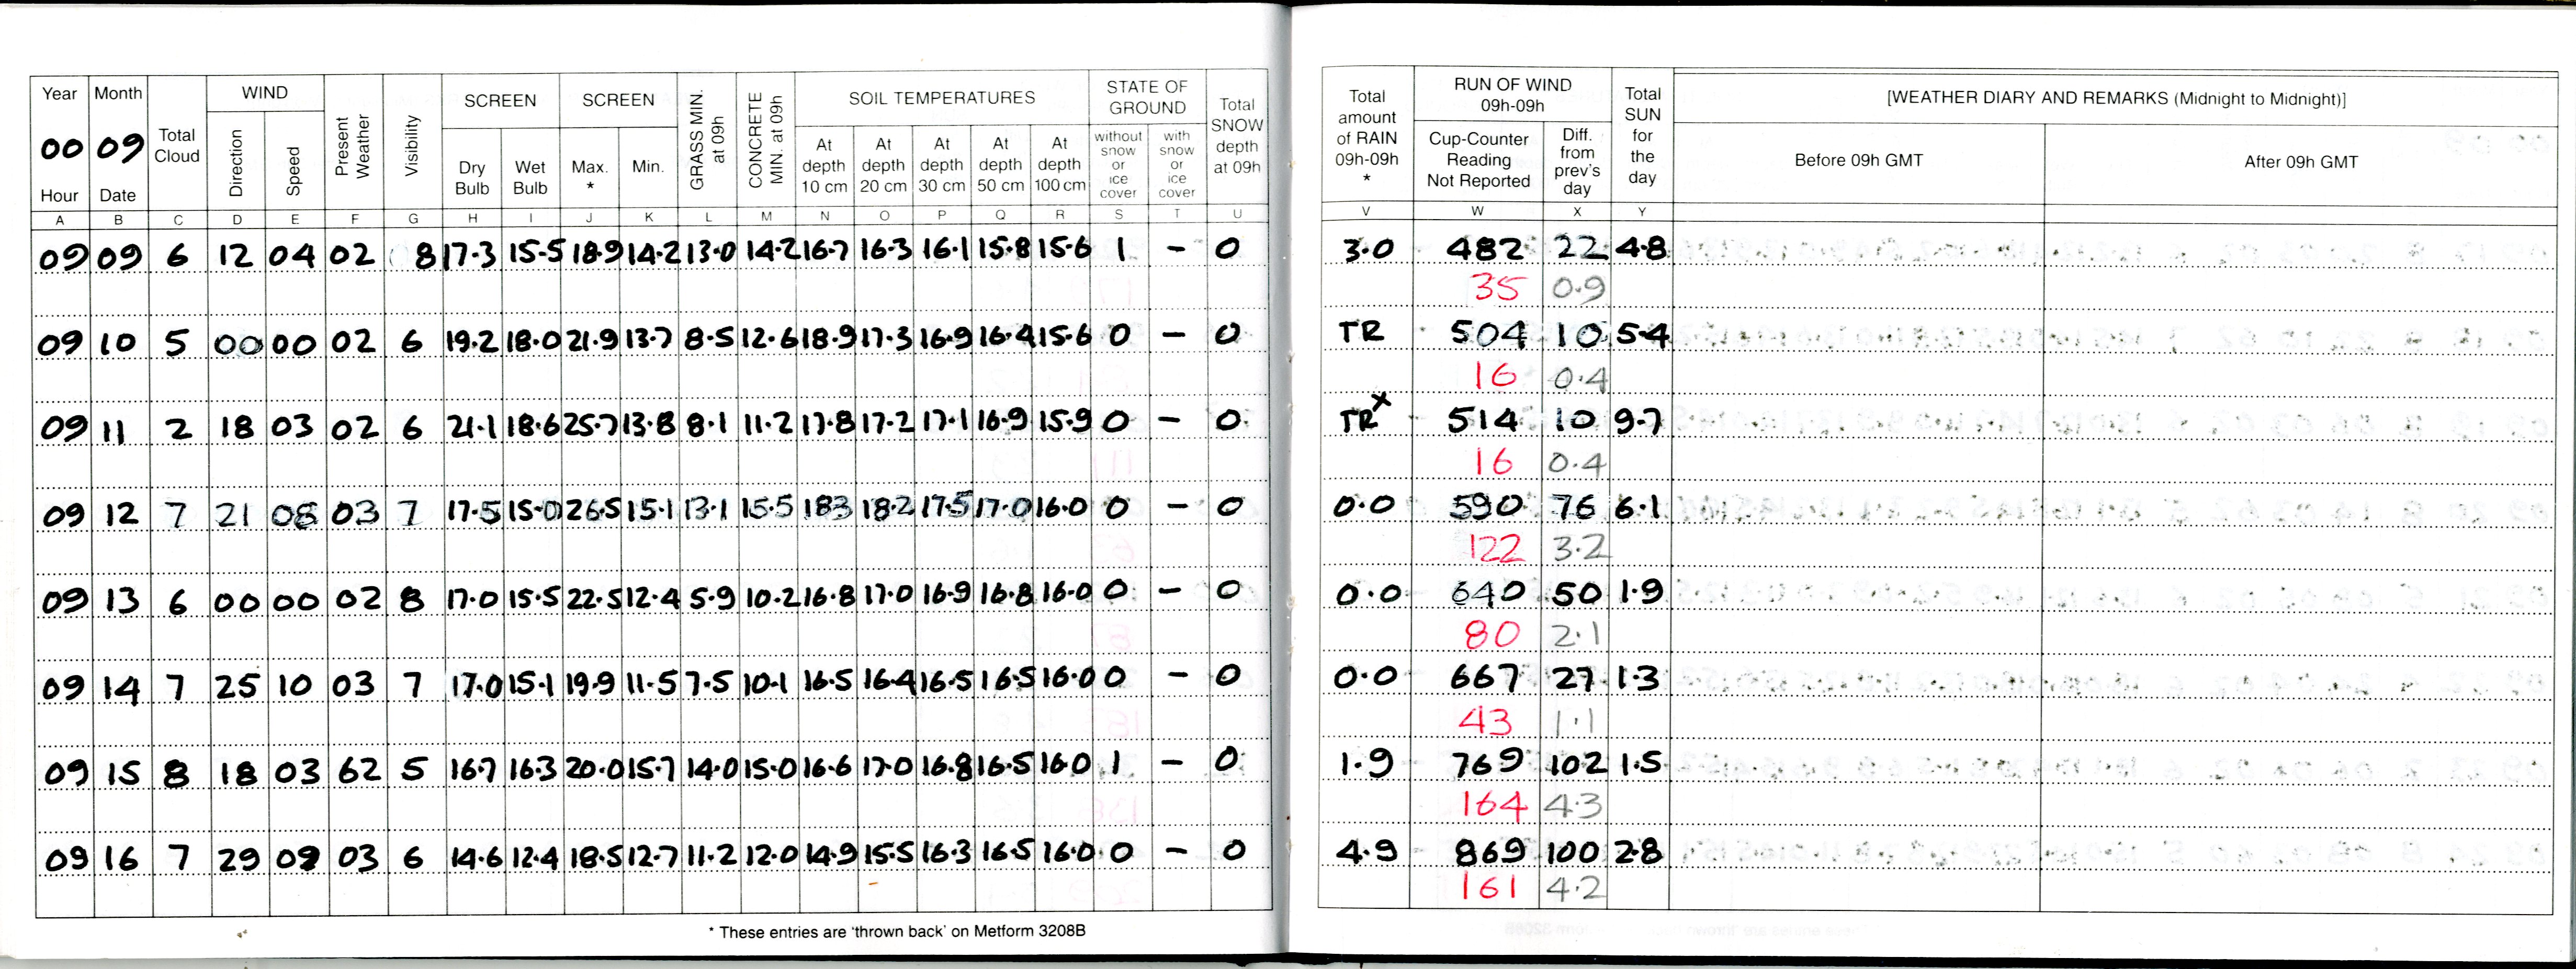 Year Month Total Cloud WIND Present Weather Visibility SCREEN SCREEN GRASS MIN. at 09h CONCRETE MIN. at 09h SOIL TEMPERATURES STATE OF GROUND Total SNOW depth at 09h
00 09 Direction Speed Dry Bulb Wet Bulb Max. * Min. At depth 10 cm At depth 20 cm At depth 30 cm At depth 50 cm At depth 100 cm without snow or ice cover with snow or ice cover
Hour Date
A B C D E F G H I J K L M N O P Q R S T U
09 09 6 12 04 02 8 17.3 15.5 18.9 14.2 13.0 14.2 16.7 16.3 16.1 15.8 15.6 1 – 0
09 10 5 00 00 02 6 19.2 18.0 21.9 13.7 8.5 12.6 18.9 17.3 16.9 16.4 15.6 0 – 0
09 11 2 18 03 02 6 21.1 18.6 25.7 13.8 8.1 11.2 17.8 17.2 17.1 16.9 15.9 0 – 0
09 12 7 21 08 03 7 17.5 15.0 26.5 15.1 13.1 15.5 183 18.2 17.5 17.0 16.0 0 – 0
09 13 6 00 00 02 8 17.0 15.5 22.5 12.4 5.9 10.2 16.8 17.0 16.9 16.8 16.0 0 – 0
09 14 7 25 10 03 7 17.0 15.1 19.9 11.5 7.5 10.1 16.5 16.4 16.5 16.5 16.0 0 – 0
09 15 8 18 03 62 5 16.7 16.3 20.0 15.7 14.0 15.0 16.6 17.0 16.8 16.5 16.0 1 – 0
09 16 7 29 09 03 6 14.6 12.4 18.5 12.7 11.2 12.0 14.9 15.5 16.3 16.5 16.0 0 – 0
* These entries are 'thrown back' on Metform 3208B
Total amount of RAIN 09h-09h * RUN OF WIND 09h-09h Total SUN for the day [WEATHER DIARY AND REMARKS (Midnight to Midnight)]
Cup-Counter Reading Not Reported Diff. from prev's day Before 09h GMT After 09h GMT
V W X Y
3.0 482 22 4.8
35 0.9
TR 504 10 5.4
16 0.4
TR x 514 10 9.7
16 0.4
0.0 590 76 6.1
122 3.2
0.0 640 50 1.9
80 2.1
0.0 667 27 1.3
43 1.1
1.9 769 102 1.5
164 4.3
4.9 869 100 2.8
161 4.2